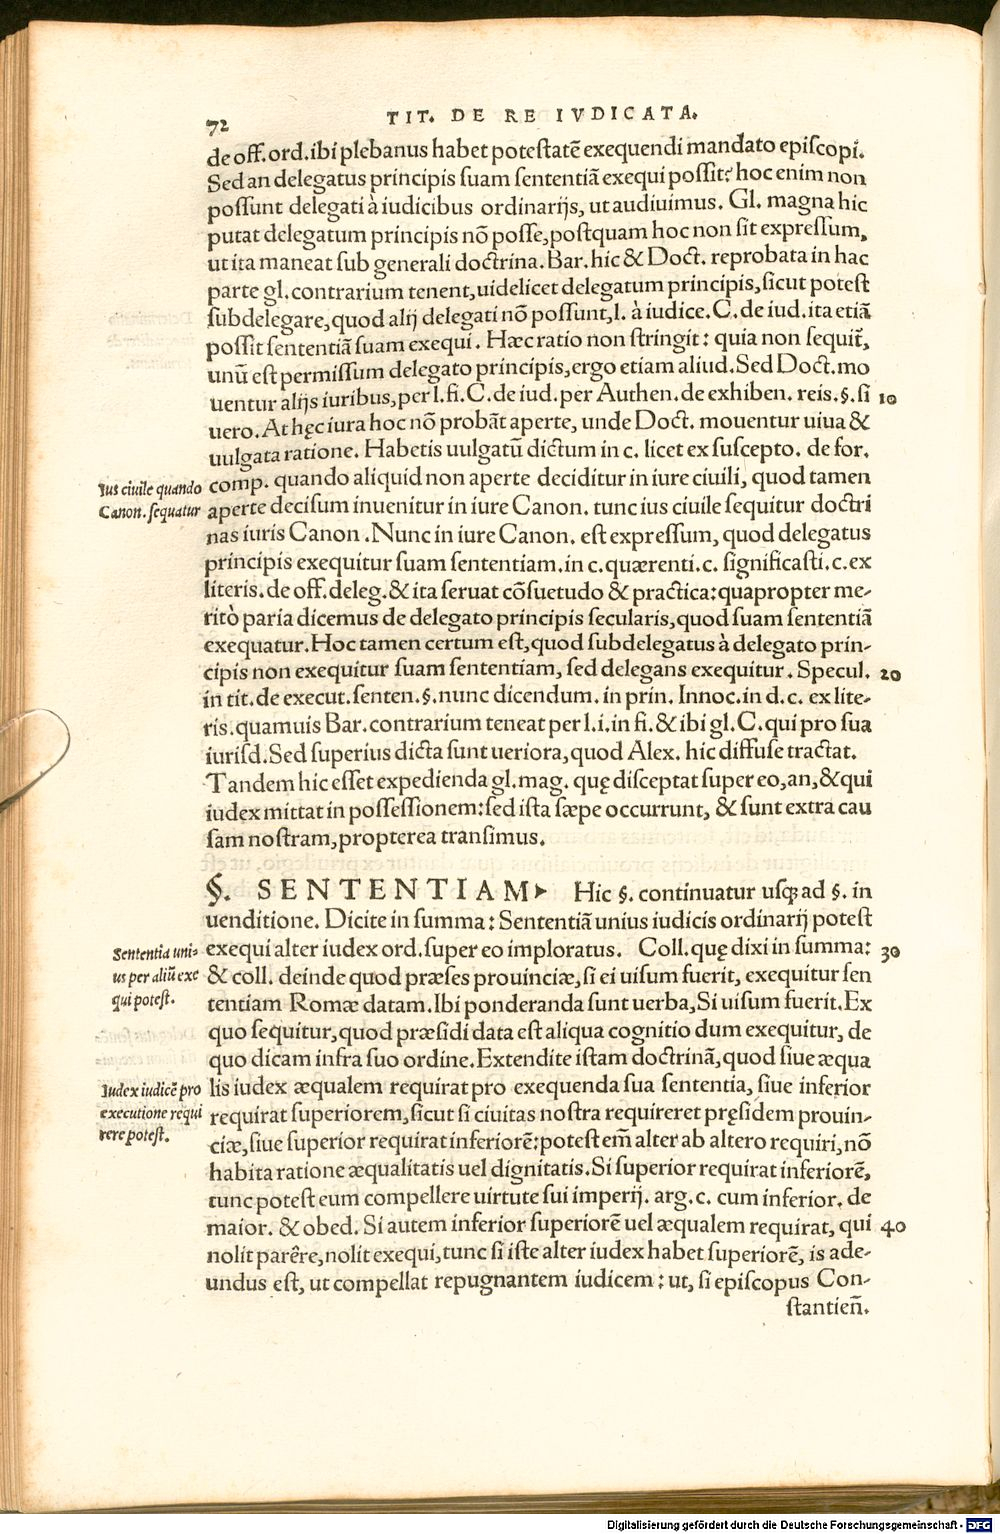 72
TIT. DE RE IVDICATA.
de off. ord. ibi plebanus habet potestatē exequendi mandato episcopi.
Sed an delegatus principis suam sententiā exequi possit? hoc enim non
possunt delegati à iudicibus ordinarijs, ut audiuimus. Gl. magna hic
putat delegatum principis nō posse, postquam hoc non sit expressum,
ut ita maneat sub generali doctrina. Bar. hic & Doct. reprobata in hac
parte gl. contrarium tenent, uidelicet delegatum principis, sicut potest
subdelegare, quod alij delegati nō possunt, l. à iudice. C. de iud. ita etiā
possit sententiā suam exequi. Hæc ratio non stringit: quia non sequit̃,
unū est permissum delegato principis, ergo etiam aliud. Sed Doct. mo
uentur alijs iuribus, per l. fi. C. de iud. per Authen. de exhiben. reis. §. si 10
uero. At hęc iura hoc nō probāt aperte, unde Doct. mouentur uiua &
uulgata ratione. Habetis uulgatū dictum in c. licet ex suscepto. de for.
Ius ciuile quando
Canon. sequatur
comp. quando aliquid non aperte deciditur in iure ciuili, quod tamen
aperte decisum inuenitur in iure Canon. tunc ius ciuile sequitur doctri
nas iuris Canon. Nunc in iure Canon. est expressum, quod delegatus
principis exequitur suam sententiam. in c. quærenti. c. significasti. c. ex
literis. de off. deleg. & ita seruat cōsuetudo & practica: quapropter me-
ritò paria dicemus de delegato principis secularis, quod suam sententiā
exequatur. Hoc tamen certum est, quod subdelegatus à delegato prin-
cipis non exequitur suam sententiam, sed delegans exequitur. Specul. 20
in tit. de execut. senten. §. nunc dicendum. in prin. Innoc. in d. c. ex lite-
ris. quamuis Bar. contrarium teneat per l. i. in fi. & ibi gl. C. qui pro sua
iurisd. Sed superius dicta sunt ueriora, quod Alex. hic diffuse tractat.
Tandem hic esset expedienda gl. mag. quę disceptat super eo, an, & qui
iudex mittat in possessionem: sed ista sæpe occurrunt, & sunt extra cau
sam nostram, propterea transimus.
§. SENTENTIAM Hic §. continuatur usq; ad §. in
uenditione. Dicite in summa: Sententiā unius iudicis ordinarij potest
Sententia uni-
us per aliū exe
qui potest.
exequi alter iudex ord. super eo imploratus. Coll. quę dixi in summa: 30
& coll. deinde quod præses prouinciæ, si ei uisum fuerit, exequitur sen
tentiam Romæ datam. Ibi ponderanda sunt uerba, Si uisum fuerit. Ex
quo sequitur, quod præsidi data est aliqua cognitio dum exequitur, de
quo dicam infra suo ordine. Extendite istam doctrinā, quod siue æqua
Iudex iudicē pro
executione requi
rere potest.
lis iudex æqualem requirat pro exequenda sua sententia, siue inferior
requirat superiorem, sicut si ciuitas nostra requireret pręsidem prouin-
ciæ, siue superior requirat inferiorē: potest em̄ alter ab altero requiri, nō
habita ratione æqualitatis uel dignitatis. Si superior requirat inferiorē,
tunc potest eum compellere uirtute sui imperij. arg. c. cum inferior. de
maior. & obed. Si autem inferior superiorē uel æqualem requirat, qui 40
nolit parêre, nolit exequi, tunc si iste alter iudex habet superiorē, is ade-
undus est, ut compellat repugnantem iudicem: ut, si episcopus Con-
stantien̄.
Digitalisierung gefördert durch die Deutsche Forschungsgemeinschaft - DFG